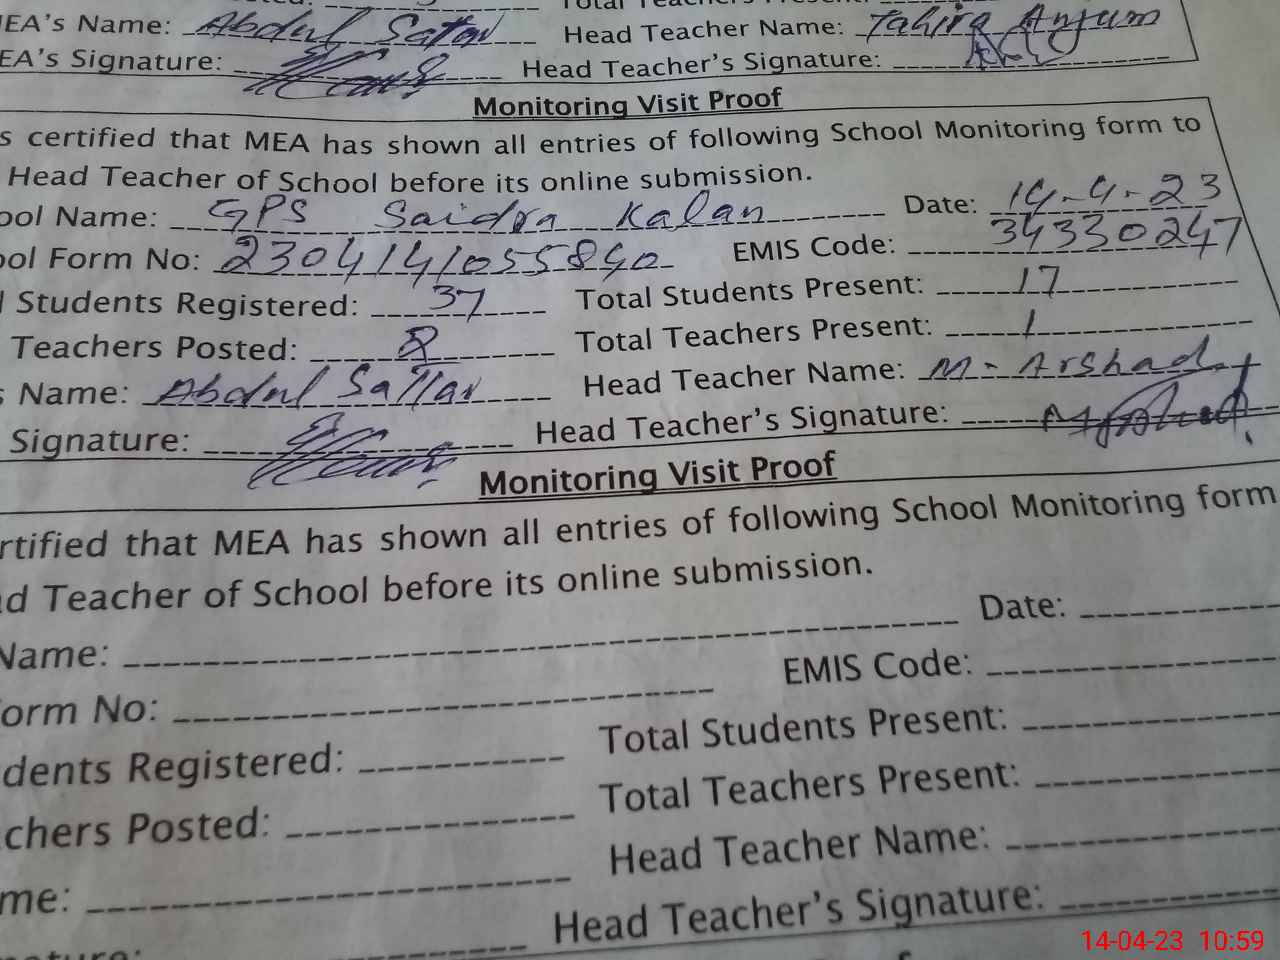 Total Teachers Present:
MEA's Name: Abdul Sattar Head Teacher Name: Tahira Anjum
EA's Signature: Head Teacher's Signature:
Monitoring Visit Proof
s certified that MEA has shown all entries of following School Monitoring form to
Head Teacher of School before its online submission.
ool Name: GPS Saidra Kalan Date: 14-4-23
ool Form No: 2304141055840 EMIS Code: 34330247
l Students Registered: 37 Total Students Present: 17
Teachers Posted: 2 Total Teachers Present: 1
s Name: Abdul Sattar Head Teacher Name: M. Arshad
Signature: Head Teacher's Signature:
Monitoring Visit Proof
rtified that MEA has shown all entries of following School Monitoring form
ad Teacher of School before its online submission.
Name: Date:
orm No: EMIS Code:
dents Registered: Total Students Present:
chers Posted: Total Teachers Present:
me: Head Teacher Name:
nature: Head Teacher's Signature:
14-04-23 10:59